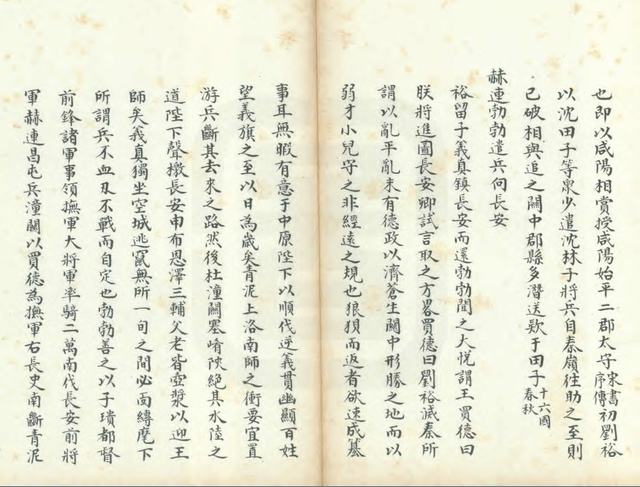 也即以咸陽相賞授咸陽始平二郡太守宋書序傳初劉裕
以沈田子等衆少遣沈林子將兵自秦嶺往助之至則
已破相與追之關中郡縣多潛送款于田子十六國春秋
赫連勃勃遣兵向長安
裕留子義真鎮長安而還勃勃聞之大悅謂王買德曰
朕將進圖長安卿試言取之方畧買德曰劉裕滅秦所
謂以亂平亂未有德政以濟蒼生關中形勝之地而以
弱才小兒守之非經遠之規也狼狽而返者欲速成篡
事耳無暇有意于中原陛下以順伐逆義貫幽顯百姓
望義旗之至以日為歲矣青泥上洛南師之衝要宜置
游兵斷其去來之路然後杜潼關塞崤陜絕其水陸之
道陛下聲檄長安申布恩澤三輔父老皆壺漿以迎王
師矣義真獨坐空城逃竄無所一旬之間必面縛麾下
所謂兵不血刃不戰而自定也勃勃善之以子璝都督
前鋒諸軍事領撫軍大將軍率騎二萬南伐長安前將
軍赫連昌屯兵潼關以買德為撫軍右長史南斷青泥